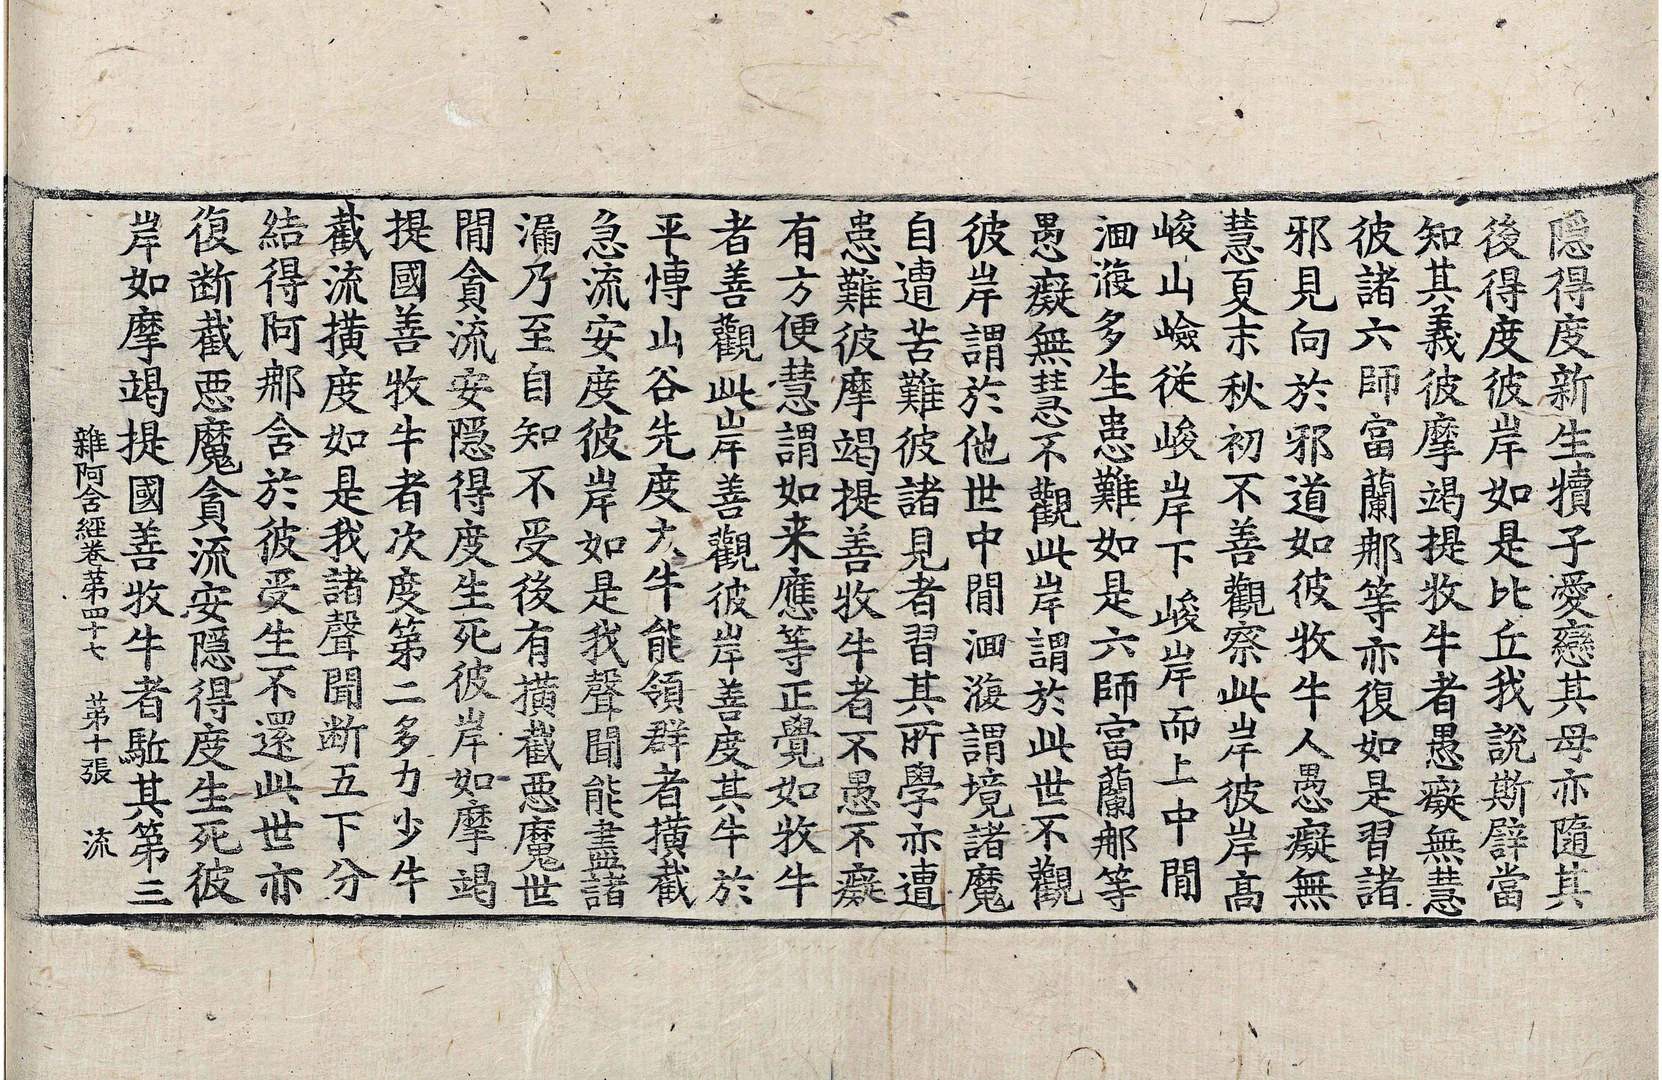 隱得度新生犢子愛戀其母亦隨其
後得度彼岸如是比丘我說斯譬當
知其義彼摩竭提牧牛者愚癡無慧
彼諸六師富蘭那等亦復如是習諸
邪見向於邪道如彼牧牛人愚癡無
慧夏末秋初不善觀察此岸彼岸高
峻山嶮從峻岸下峻岸而上中閒
洄澓多生患難如是六師富蘭那等
愚癡無慧不觀此岸謂於此世不觀
彼岸謂於他世中閒洄澓謂境諸魔
自遭苦難彼諸見者習其所學亦遭
患難彼摩竭提善牧牛者不愚不癡
有方便慧謂如来應等正覺如牧牛
者善觀此岸善觀彼岸善度其牛於
平博山谷先度大牛能領群者橫截
急流安度彼岸如是我聲聞能盡諸
漏乃至自知不受後有橫截惡魔世
閒貪流安隱得度生死彼岸如摩竭
提國善牧牛者次度第二多力少牛
截流橫度如是我諸聲聞断五下分
結得阿那含於彼受生不還此世亦
復断截惡魔貪流安隱得度生死彼
岸如摩竭提國善牧牛者駈其第三
雜阿含經卷第四十七 第十張 流